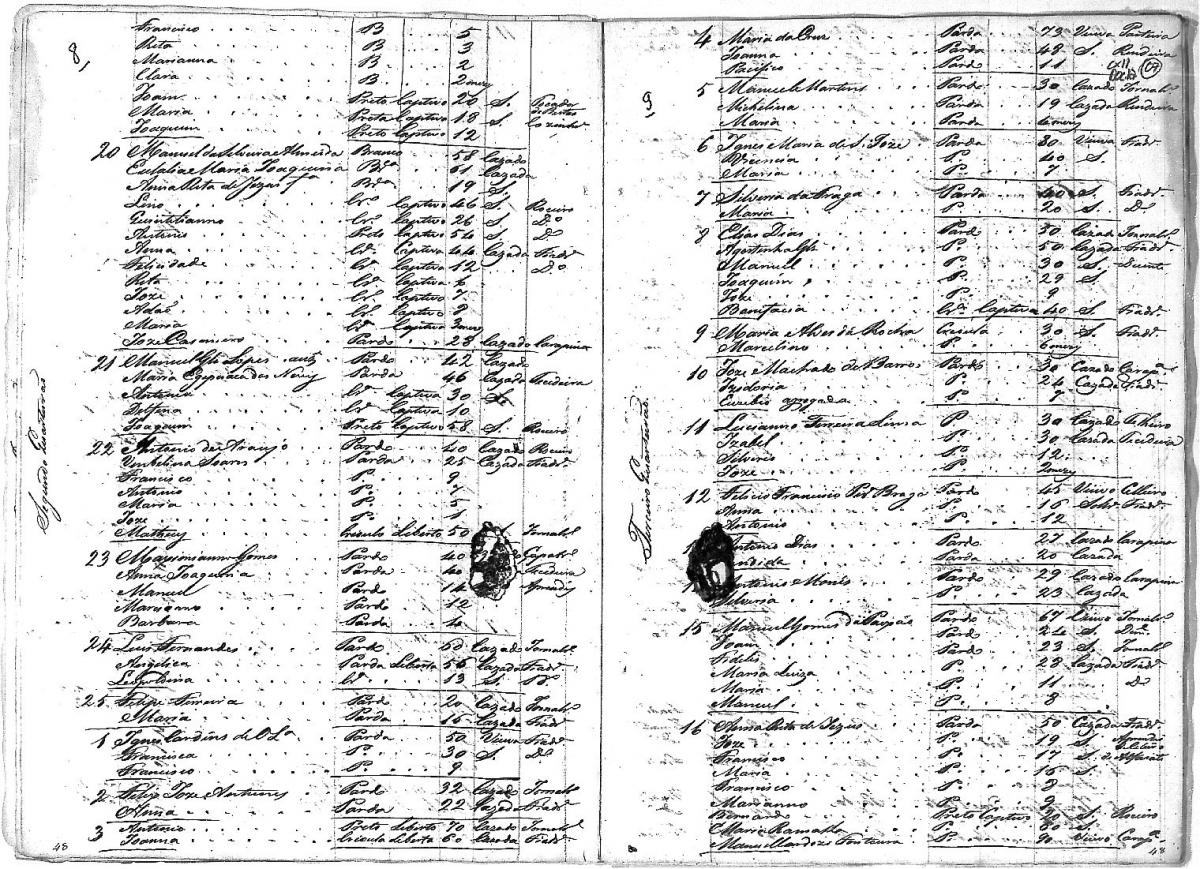 8,
Francisco B 5
Rita B 3
Marianna B 2
Clara B. 2 mezes
Joam Preto Captivo 20 S.
Maria Preta Captiva 18 S.
Joaquim Preto Captivo 12
20 Manuel da Silveira e Almeida Branco 58 Cazado
Eufalia Maria Joaquina Brca 61 Cazada
Anna Rita de Jezus fa Brca 19 S.
Lino Cro Captivo 46 S. Roceiro
Quintilianno Cro Captivo 26 S Do
Antonio Preto Captivo 54 S Do
Anna Cra Captiva 44 Cazada Fiadra
Felicidade Cra Captiva 12 Do
Rita Cra Captiva 6
Joze Cro Captivo 7
Adaõ Cro Captivo 8
Maria Cra Captiva 3 mezes
Joze Casemiro Pardo 28 Cazado Carapina
21 Manuel Lopes Pardo 42 Cazado
Maria Egipciaca das Neves Parda 46 Cazada Tecedeira
Antonia Cra Captiva 30 S.
Delfina Cra Captiva 10
Joaquim Preto Captivo 58 S. Roceiro
Segundo Quarteirão
22 Antonio de Araujo Pardo 40 Cazado Roceiro
Umbilina Soares Parda 25 Cazada Fiadra
Francisco P. 9
Antonio P. 7
Maria P. 5
Joze P. 1
Matheus Creoulo Liberto 50 Jornalro
23 Maximianno Gomes Pardo 40
Anna Joaquina Parda 40 Tecedeira
Manuel Pardo 14
Marianno Pardo 12
Barbara Parda 4
24 Luis Fernandes Pardo 50 Cazado Jornalro
Angelica Parda Liberta 56 Cazada Fiadra
Leopoldina Cra 13 S Do
25 Felipe Ferreira Pardo 20 Cazado Jornalro
Maria Parda 16 Cazada Fiadra
1 Ignes Cardins de Olra Parda 50 Viuva Fiadra
Francisca P. 30 S. Do
Francisco P. 9
2 Felis Joze Antunes Pardo 32 Cazado Jornalro
Anna Parda 22 Cazada Fiadra
3 Antonio Preto Liberto 70 Cazado Jornalro
Joanna Creoula Liberta 60 Cazada Fiadra
48
9,
4 Maria da Cruz Parda 73 Viuva Parteira
Joanna Parda 48 S. Rendeira
Pacifico Pardo 11
5 Manuel Martins Pardo 30 Cazado Jornalro
Michilina Parda 19 Cazada Rendeira
Maria Parda 6 mezes
6 Ignes Maria de S. Joze Parda 80 Viuva Fiadra
Vicencia P. 40 S.
Maria P. 7
7 Silveria da Fraga Parda 40 S. Fiadra
Maria P. 20 S. Do
8 Elias Dias Pardo 30 Cazado Jornalro
Agostinha P. 50 Cazada Fiadra
Manuel P. 30 S.
Joaquim P. 29 S.
Joze P. 9
Bonifacia Cra Captiva 40 S Fiadra
9 Maria Alves da Rocha Creoula 30 S. Fiadra
Marcelino P. 6 mezes
10 Joze Machado de Barros Pardo 30 Cazado
Izidoria P. 24 Cazada Fiadra
Euzebio agregado P. 7
Terceiro Quarteirão
11 Lucianno Ferreira Lima P 30 Cazado Selleiro
Izabel P. 30 Cazada Tecedeira
Silverio P. 12.
Joze P. 2 mezes
12 Felicio Francisco Braga Pardo 45 Viuvo Celleiro
Anna P. 16 Solta Fiadra
Antonio P. 12
Antonio Dias Pardo 27 Cazado Carapina
Parda 20 Cazada
Antonio Pardo 29 Cazado Carapina
Silveria P. 23 Cazada
15 Manuel Gomes Pardo 67 Viuvo Jornalro
Joam Pardo 24 S. Do
Fidelis Pardo 23 S. Jornalro
Maria Luiza P. 28 Cazada Fiadra
Maria P. 11 Do
Manuel P. 8
16 Anna Rita de Jezus Parda 50 Cazada Fiadra
Joze P. 19 S.
Francisco P. 17 S.
Maria P. 15 S.
Francisco P. 8
Marianno P. 9
Bernardo Preto Captivo S. Roceiro
Maria Ramalho P. 80 S.
48